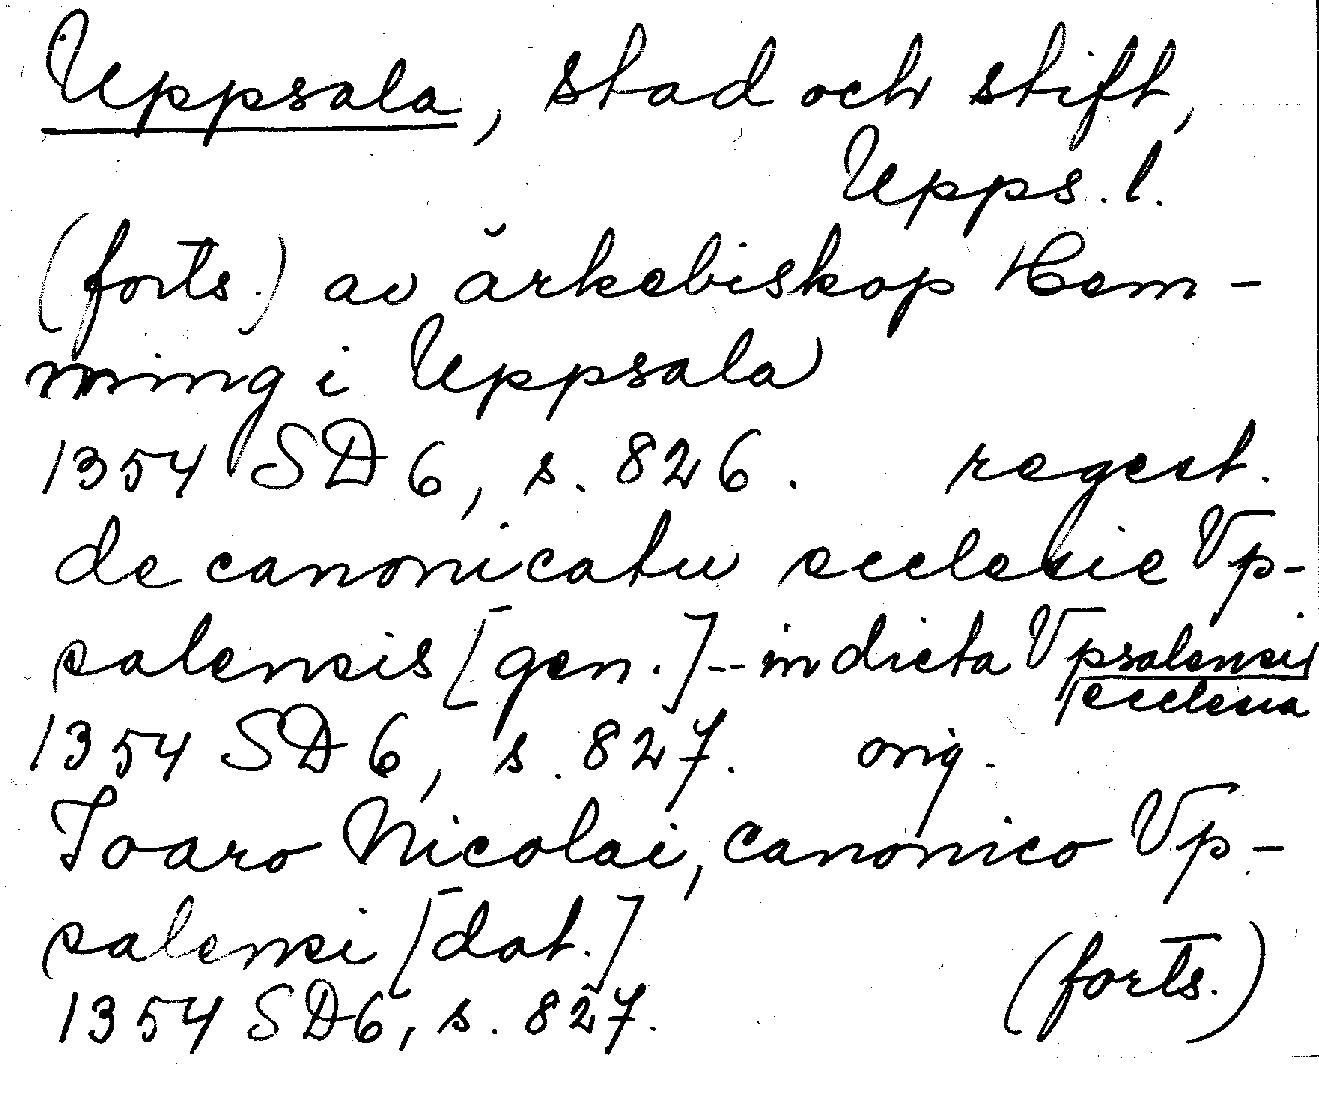 Uppsala, stad och stift,
Upps. l.
(forts.) av ärkebiskop Hem-
ming i Uppsala
1354 SD 6, s. 826. regest.
de canonicatu ecclesie Vp-
salensis [gen.] -- in dicta Vpsalensi
ecclesia
1354 SD 6, s. 827. orig.
Joaro Nicolai, canonico Vp-
salensi [dat.]
1354 SD 6, s. 827. (forts.)